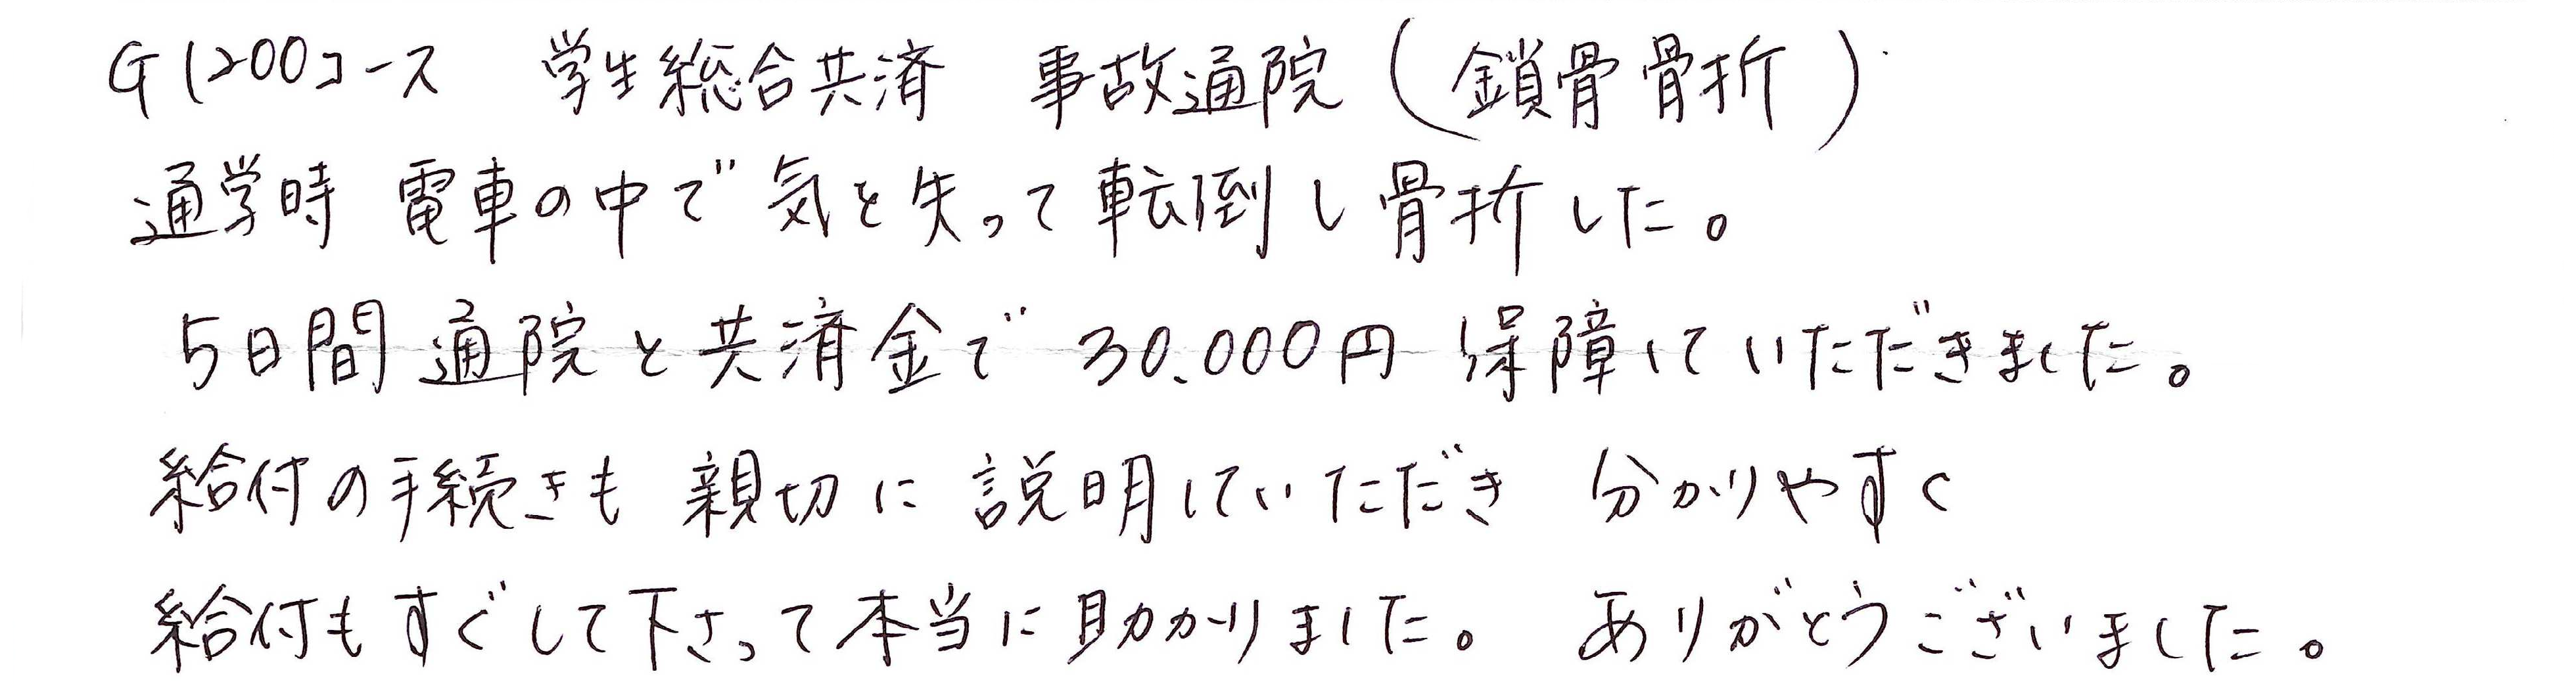 G1200コース 学生総合共済 事故通院（鎖骨骨折）
通学時 電車の中で気を失って転倒し骨折した。
5日間通院と共済金で30.000円保障していただきました。
給付の手続きも親切に説明していただき 分かりやすく
給付もすぐして下さって本当に助かりました。 ありがとうございました。